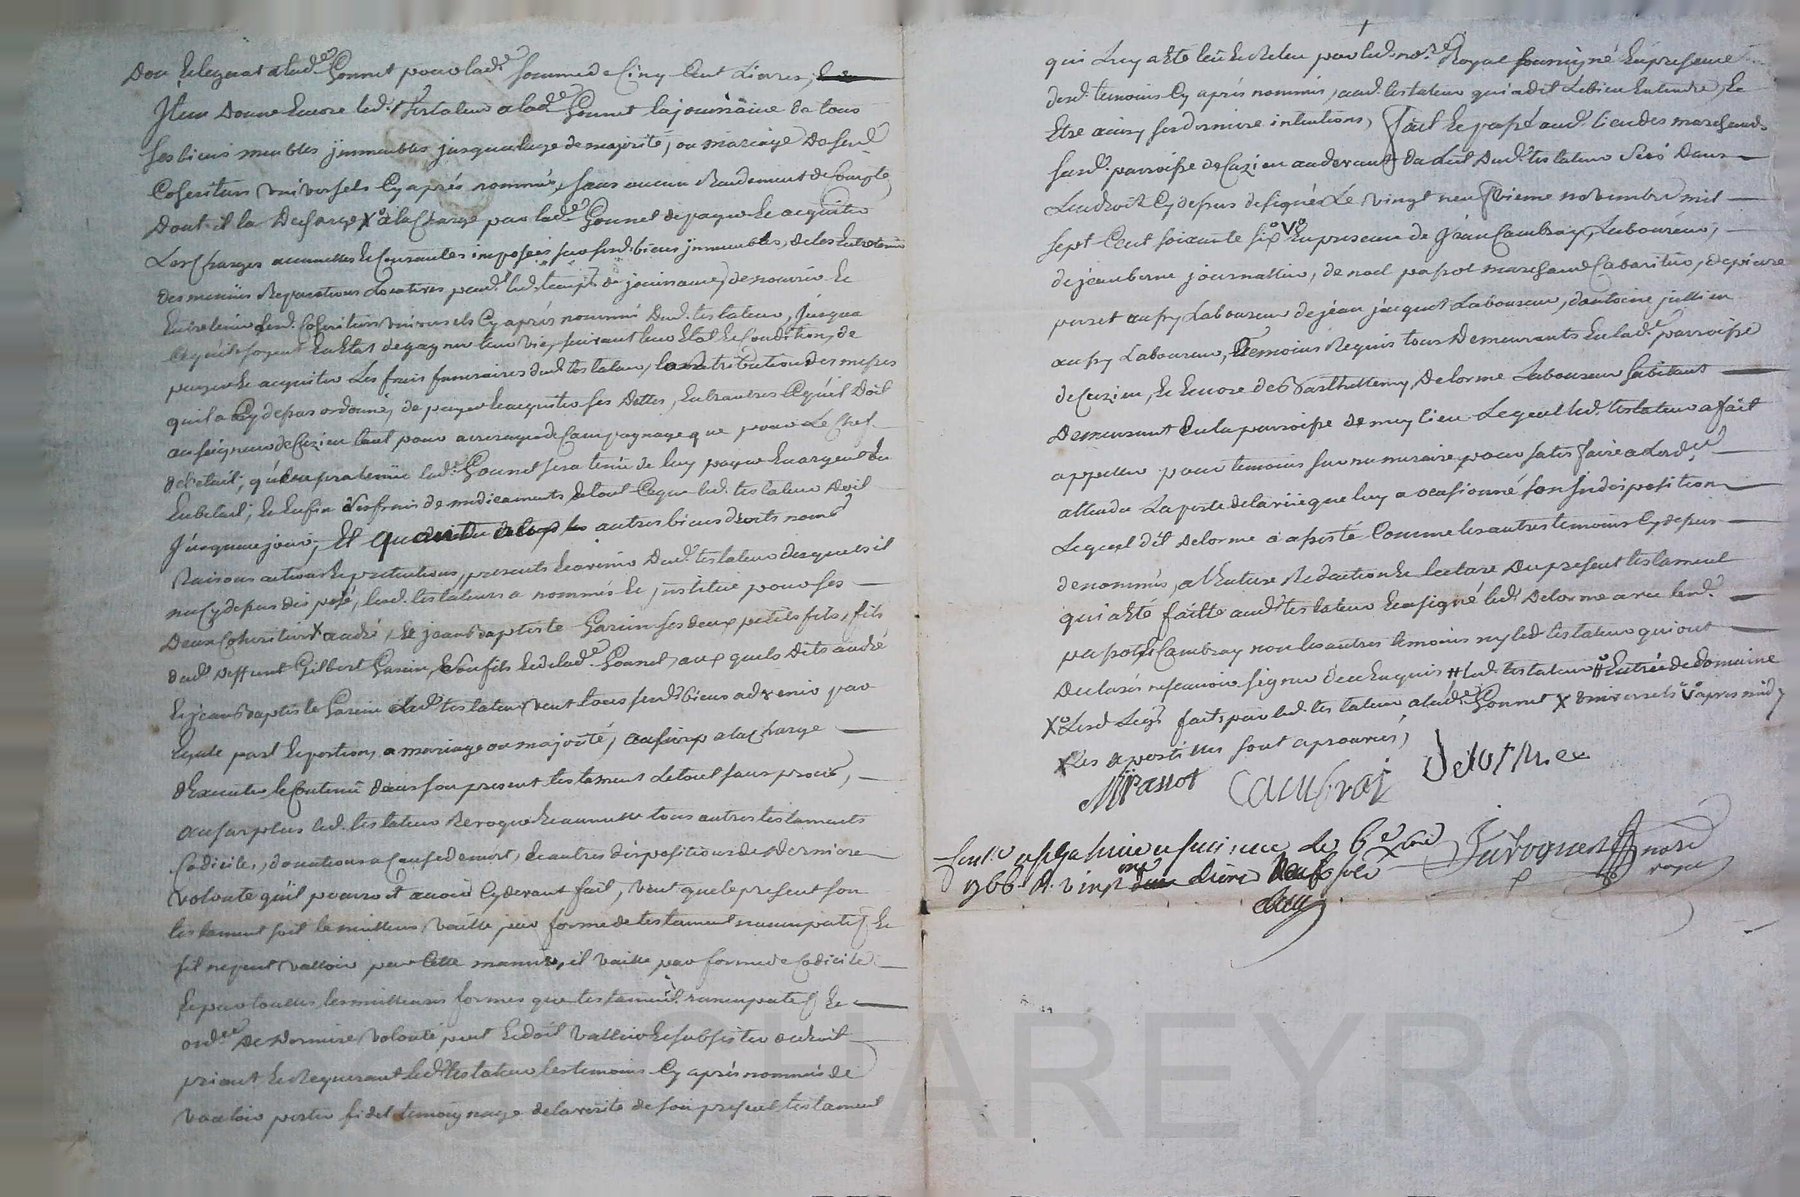 Don & legat a lad.e Gonnet pour lad.e somme de Cinq Cent Livres,
Item Donne Encore led.t Testateur a lad.e Gonnet la jouissance de tous
ses biens meubles immeubles jusqua lage de majorité, ou mariage De ses d.
Coheritiers universels Cy aprés nommés, sans aucun Rendement de Compte
Dont il la Decharge X a la Charge par lad.e Gonnet de payer & acquitter
Les Charges annuelles & Courantes imposées sur sesd. biens immeubles, de les Entretenir
des menues Reparations Locatives pend.t led. temps de jouissance, de nourrir &
Entretenir Lesd. Coheritiers universels Cy aprés nommés Dud. testateur, jusqua
Ce quils soyent En Etat de gagner leur vie, suivant leur Etat & Condition, de
payer & acquitter Les frais funeraires dud. testateur, la retribution des messes
quil a Cy depus ordonné, de payer & acquitter ses Dettes, Entrautres Ce quil Doit
au seigneur de Cuzieu tant pour arrerages de Campagnage que pour Le Chef
de betail, lad.e Gonnet sera tenue de luy payer En argent ou
En betail, & Enfin des frais de medicaments & tout Ce que led. testateur Doit
jusqu'a ce jour, Et quand a tous les autres biens droits noms
Raisons actions & pretentions, presents & avenir Dud. testateur desquels il
na Cy depus disposé, led. testateur a nommés & institue pour ses
Deux Coheritiers X andré, & jean Baptiste Garin ses deux petits fils, fils
dud. Deffunt Gilbert Garin, son fils & de lad.e Gonnet, aux quels Dits andré
& jean Baptiste Garin led. testateur veut tous sesd. biens advenir par
Egale part & portion, a mariage ou majorité, a la Charge
d'Executer le Contenu dans son present testament le tout sans procés,
au surplus led. testateur Revoque & annulle tous autres testaments
Codicile, donations a Cause de mort, & autres dispositions de Derniere
volonté quil pourroit avoir Cy devant fait, veut que le present son
testament soit le meilleur, vaille par forme de testament nuncupatif &
sil ne peut valloir par Cette maniere, il vaille par forme de Codicile
& par toutes les meilleures formes que testament nuncupatif &
ord.e De Derniere volonté peut & doit valloir & subsister de droit
priant & Requerant led. testateur les temoins Cy aprés nommés de
vouloir porter fidel temoignage de la verité de son present testament
qui Luy a Eté leu & Releu par led. no.re Royal soussigné En presence
desd. temoins Cy aprés nommés, aud. testateur qui a dit Lebien Entendre, &
Etre ainsy ses derniere intentions, Fait & passé aud. lieu des marchands
susd. parroisse de Cuzieu au devant du Lit Dud. testateur Sis Dans
Lendroit Cy depus designé Le vingt neufvieme novembre mil
sept Cent soixante six V.o En presence de jean Cambray, Laboureur,
de jean berne journallier, de noel passot marchand Cabaretier, de pierre
aussy Laboureur de jean jacquet Laboureur, d'antoine jullien
aussy Laboureur, Temoins Requis tous Demeurants En lad.e parroisse
de Cuzieu, & Encore de Barthellemy Delorme Laboureur habitant
Demeurant En la parroisse de meylieu Lequel led. testateur a fait
appeller pour temoin surnumeraire pour satisfaire a Lord.e
attendu La perte de la vüe que luy a ocasionné son indisposition
Lequel dit Delorme a assisté Comme les autres temoins Cy depus
denommés, a lEntiere Redaction & lecture Du present testament
qui a Eté faitte aud. testateur & a signé led. Delorme avec lesd.
passot & Cambray non les autres temoins ny led. testateur qui ont
Declarés ne scavoir signer de ce Enquis # led. testateur # Entrée de Domaine
X.o Lesd. Legs faits par led. testateur a lad.e Gonnet X universels V.o aprés midy
X Les apostilles sont aprouvées,
N Passot Cambraj Delorme
1766 R. vingt un Livre neuf sols
not.re royal